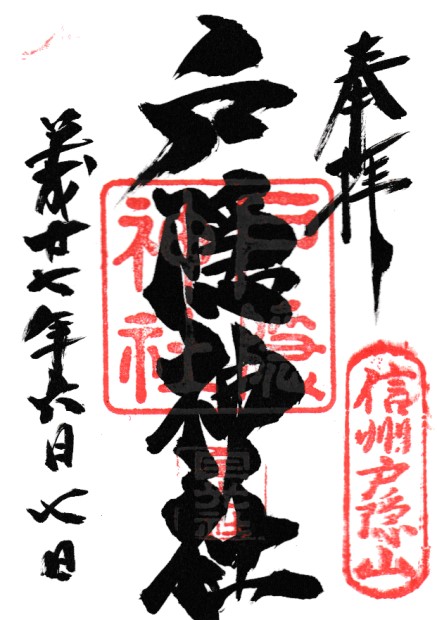 奉拝
信州戸隠山
戸隠神社
戸隠神社
平成廿七年六月七日